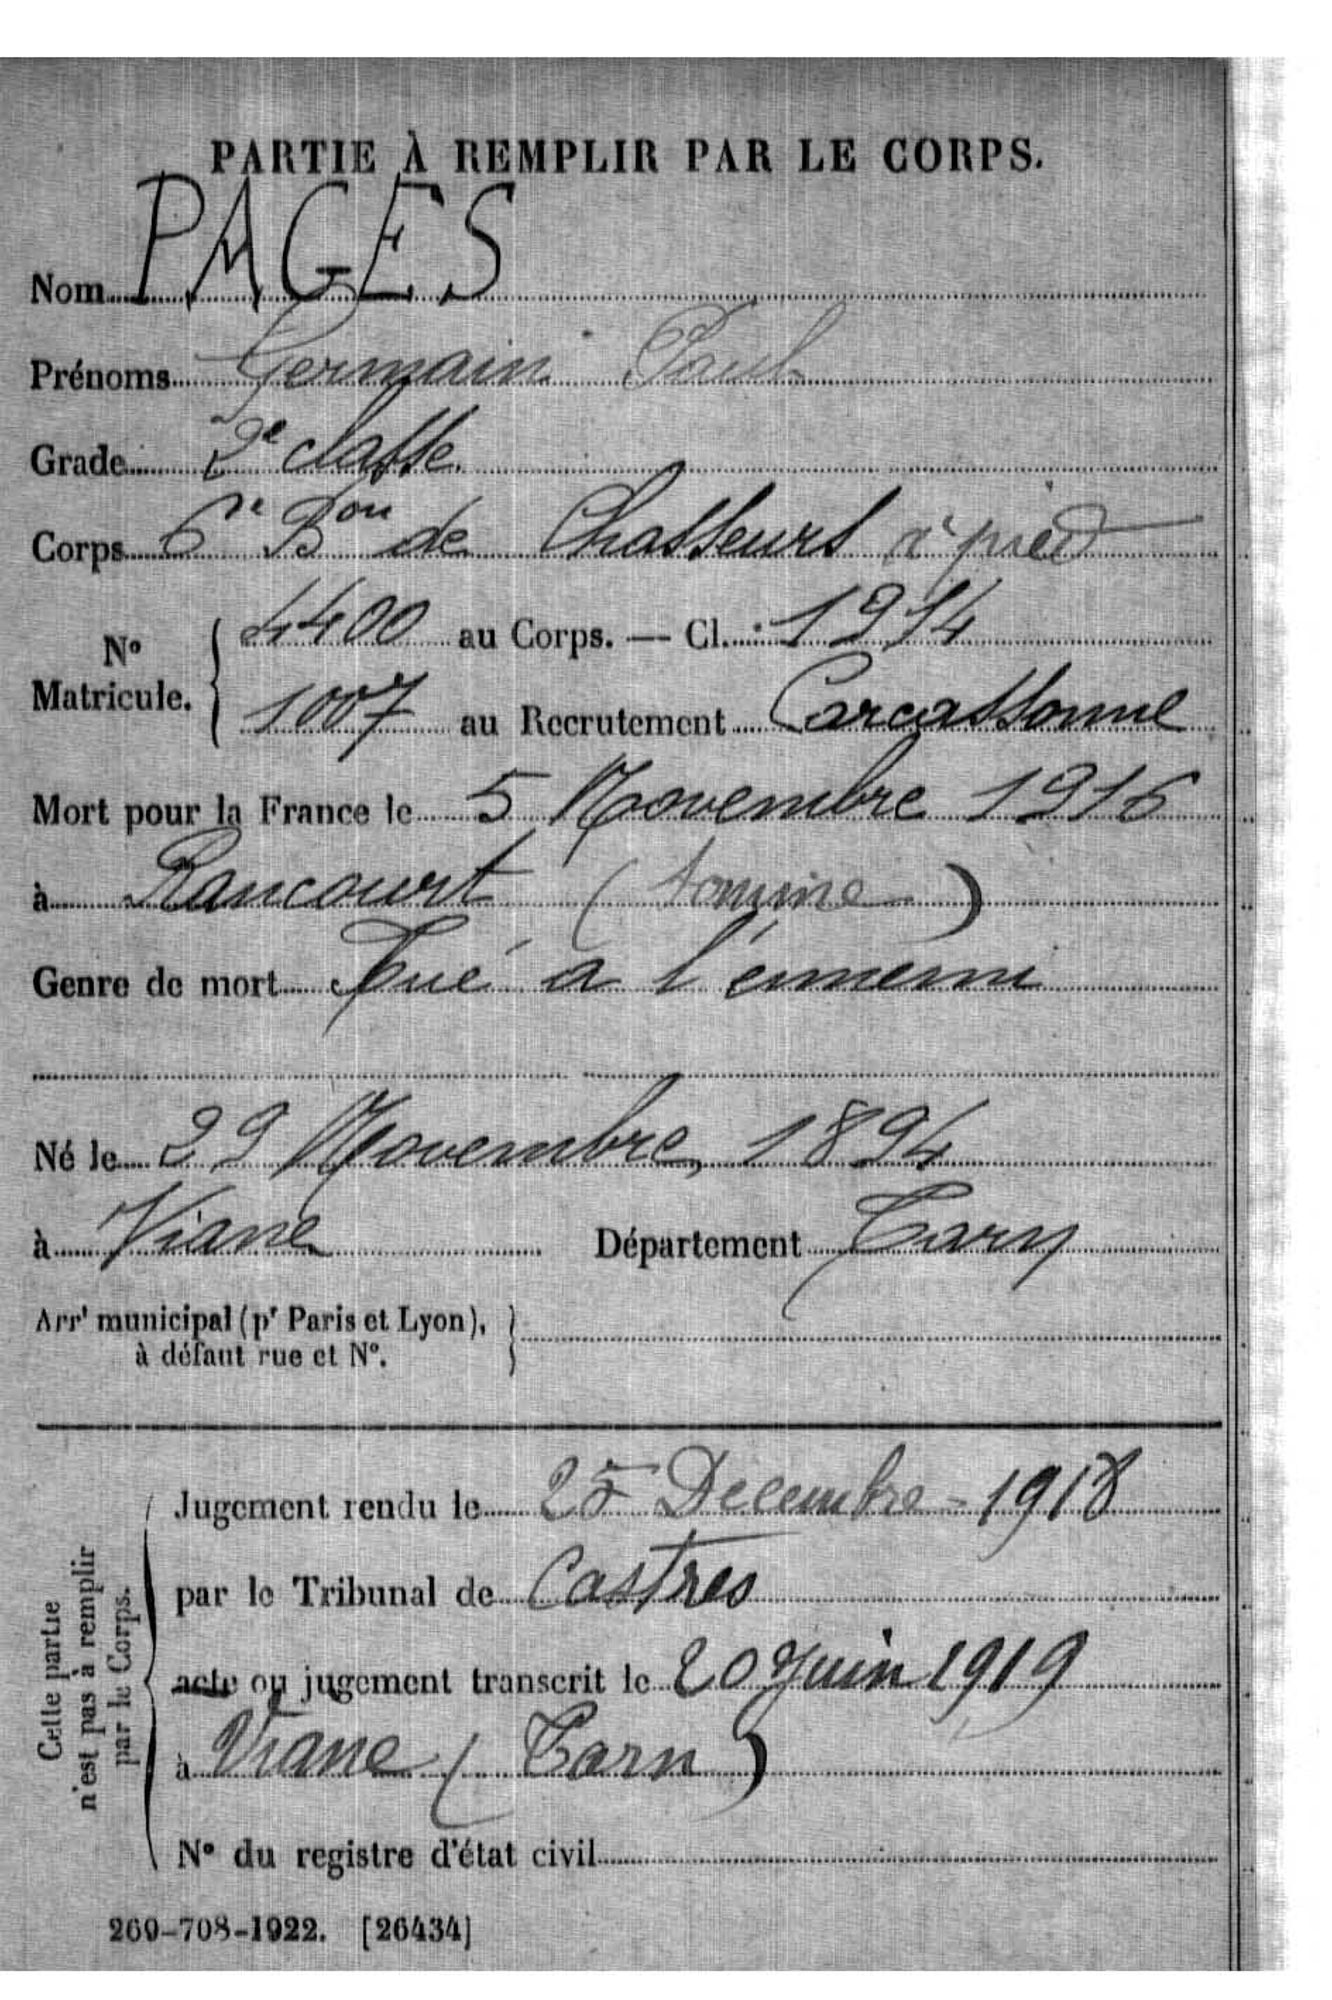 PARTIE À REMPLIR PAR LE CORPS.
Nom PAGES
Prénoms Germain Paul
Grade 2e classe
Corps 6e Bon de Chasseurs à pied
No Matricule. { 4400 au Corps. — Cl. 1914
1007 au Recrutement Carcassonne
Mort pour la France le 5 Novembre 1916
à Rancourt (Somme)
Genre de mort Tué à l'ennemi
Né le 29 Novembre 1894
à Viane Département Tarn
Arrt municipal (pr Paris et Lyon), }
à défaut rue et No.
Cette partie
n'est pas à remplir
par le Corps.
Jugement rendu le 25 Decembre - 1918
par le Tribunal de Castres
acte ou jugement transcrit le 20 Juin 1919
à Viane (Tarn)
No du registre d'état civil
269-708-1922. [26434]